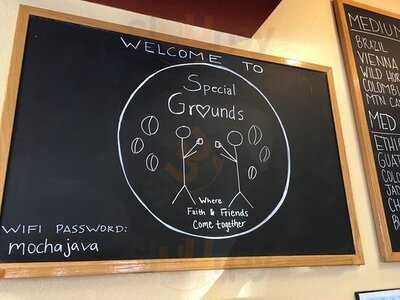 WELCOME TO
Special
Gr♡unds
Where
Faith & Friends
Come together
WIFI PASSWORD:
mochajava
MEDIUM
BRAZIL
VIENNA
WILD
COLOMB
MTN
MED
ETHI
GUAT
COLO